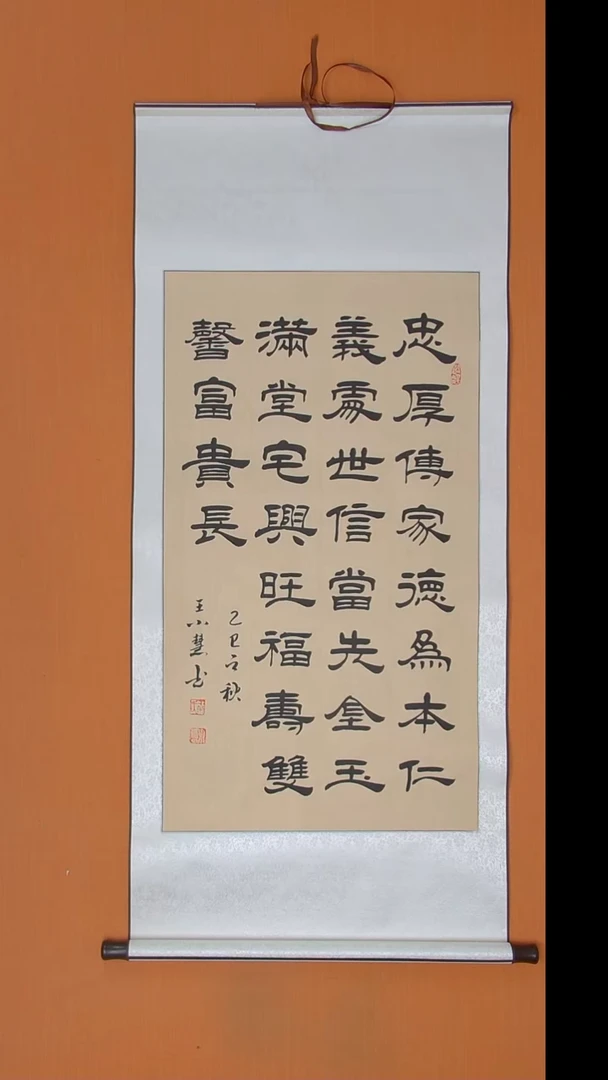 忠厚傳家德為本仁
義處世信當先金玉
滿堂宅興旺福壽雙
馨富貴長
乙巳之秋
王小慧书